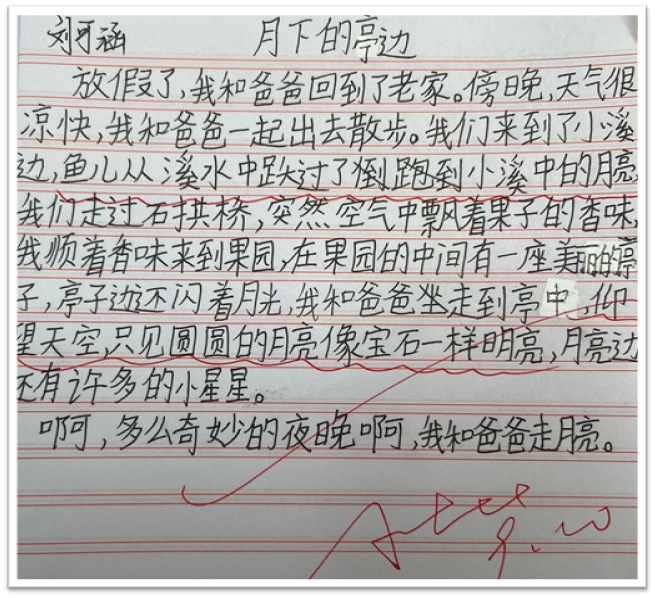 刘可涵 月下的亭边
放假了,我和爸爸回到了老家。傍晚,天气很
凉快,我和爸爸一起出去散步。我们来到了小溪
边,鱼儿从溪水中跃过了倒跑到小溪中的月亮
我们走过石拱桥,突然空气中飘着果子的香味,
我顺着香味来到果园,在果园的中间有一座美丽的亭
子,亭子边还闪着月光,我和爸爸坐走到亭中,仰
望天空,只见圆圆的月亮像宝石一样明亮,月亮边
还有许多的小星星。
啊,多么奇妙的夜晚啊,我和爸爸走月亮。
9.20